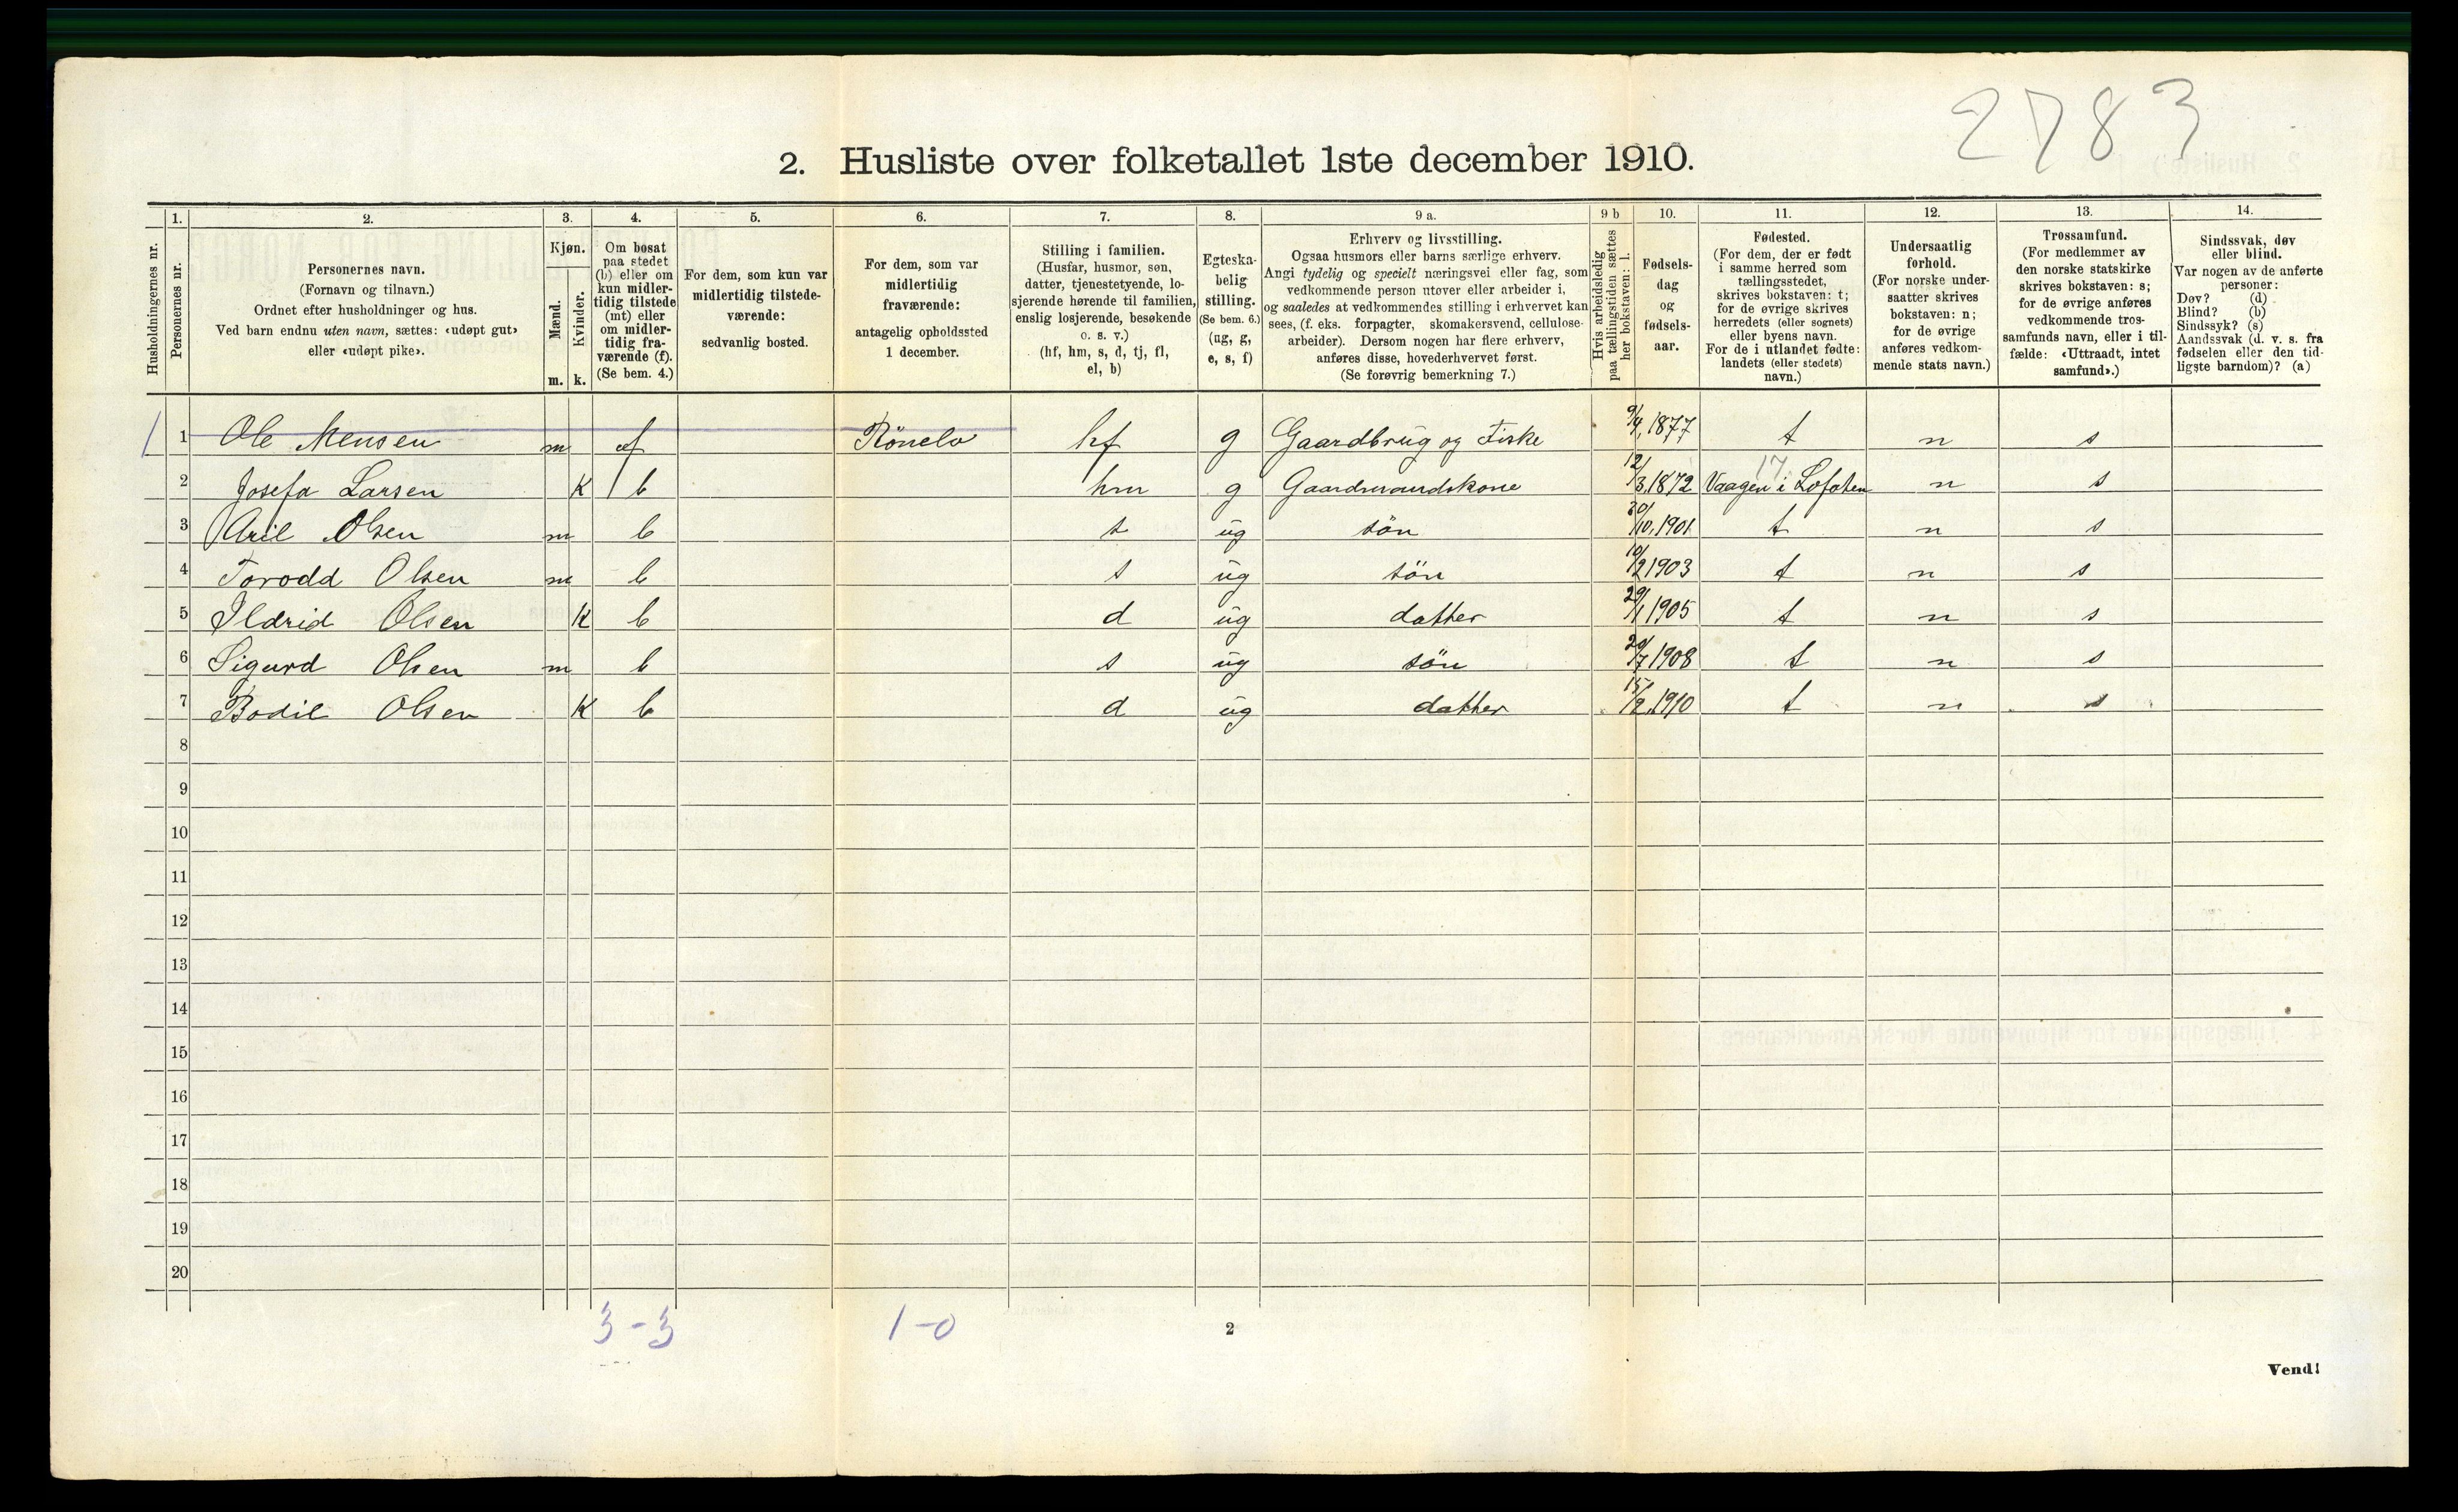 2783
2. Husliste over folketallet 1ste december 1910.
1. 2. 3. 4. 5. 6. 7. 8. 9 a. 9 b 10. 11. 12. 13. 14.
Husholdningernes nr.
Personernes nr.
Personernes navn.
(Fornavn og tilnavn.)
Ordnet efter husholdninger og hus.
Ved barn endnu uten navn, sættes: «udøpt gut»
eller «udøpt pike».
Kjøn.
Mænd.
Kvinder.
m. k.
Om bosat
paa stedet
(b) eller om
kun midler-
tidig tilstede
(mt) eller
om midler-
tidig fra-
værende (f).
(Se bem. 4.)
For dem, som kun var
midlertidig tilstede-
værende:
sedvanlig bosted.
For dem, som var
midlertidig
fraværende:
antagelig opholdssted
1 december.
Stilling i familien.
(Husfar, husmor, søn,
datter, tjenestetyende, lo-
sjerende hørende til familien,
enslig losjerende, besøkende
o. s. v.)
(hf, hm, s, d, tj, fl,
el, b)
Egteska-
belig
stilling.
(Se bem. 6.)
(ug, g,
e, s, f)
Erhverv og livsstilling.
Ogsaa husmors eller barns særlige erhverv.
Angi tydelig og specielt næringsvei eller fag, som
vedkommende person utøver eller arbeider i,
og saaledes at vedkommendes stilling i erhvervet kan
sees, (f. eks. forpagter, skomakersvend, cellulose-
arbeider). Dersom nogen har flere erhverv,
anføres disse, hovederhvervet først.
(Se forøvrig bemerkning 7.)
Hvis arbeidsledig
paa tællingstiden sættes
her bokstaven: l.
Fødsels-
dag
og
fødsels-
aar.
Fødested.
(For dem, der er født
i samme herred som
tællingsstedet,
skrives bokstaven: t;
for de øvrige skrives
herredets (eller sognets)
eller byens navn.
For de i utlandet fødte:
landets (eller stedets)
navn.)
Undersaatlig
forhold.
(For norske under-
saatter skrives
bokstaven: n;
for de øvrige
anføres vedkom-
mende stats navn.)
Trossamfund.
(For medlemmer av
den norske statskirke
skrives bokstaven: s;
for de øvrige anføres
vedkommende tros-
samfunds navn, eller i til-
fælde: «Uttraadt, intet
samfund».)
Sindssvak, døv
eller blind.
Var nogen av de anførte
personer:
Døv? (d)
Blind? (b)
Sindssyk? (s)
Aandssvak (d. v. s. fra
fødselen eller den tid-
ligste barndom)? (a)
1 1 Ole Mensen m f Rönelv hf g Gaardbrug og Fiske 9/4 1877 t n s
17
2 Josefa Larsen K b hm g Gaardmandskone 12/3 1872 Vaagen i Lofoten n s
3 Aril Olsen m b s ug sön 30/10 1901 t n s
4 Torodd Olsen m b s ug sön 10/2 1903 t n s
5 Ildrid Olsen K b d ug datter 29/1 1905 t n s
6 Sigurd Olsen m b s ug sön 20/7 1908 t n s
7 Bodil Olsen K b d ug datter 15/2 1910 t n s
8
9
10
11
12
13
14
15
16
17
18
19
20
3-3 1-0
2
Vend!